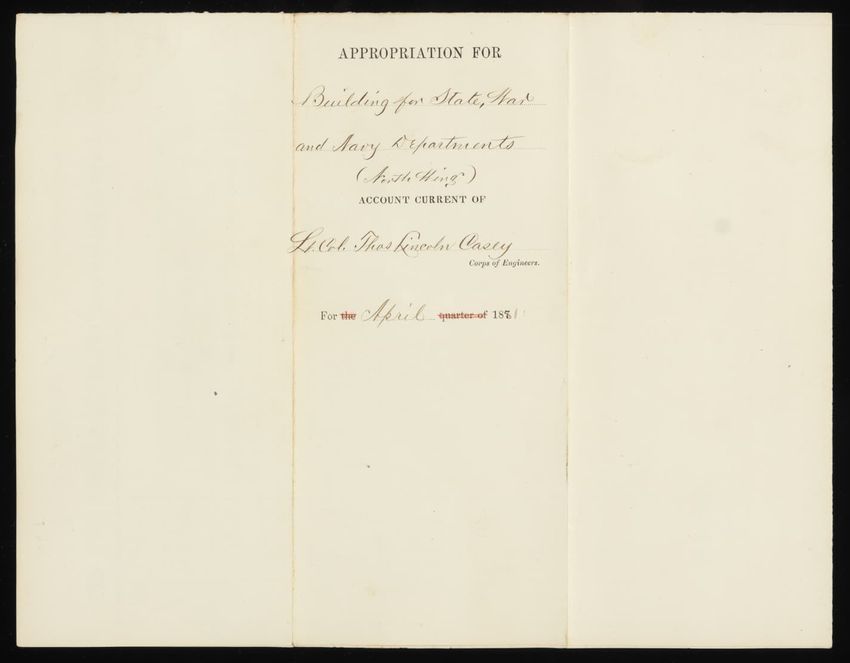 APPROPRIATION FOR
Building for State, War
and Navy Departments
(North Wing)
ACCOUNT CURRENT OF
Lt. Col. Thos Lincoln Casey
Corps of Engineers.
For the April quarter of 1881